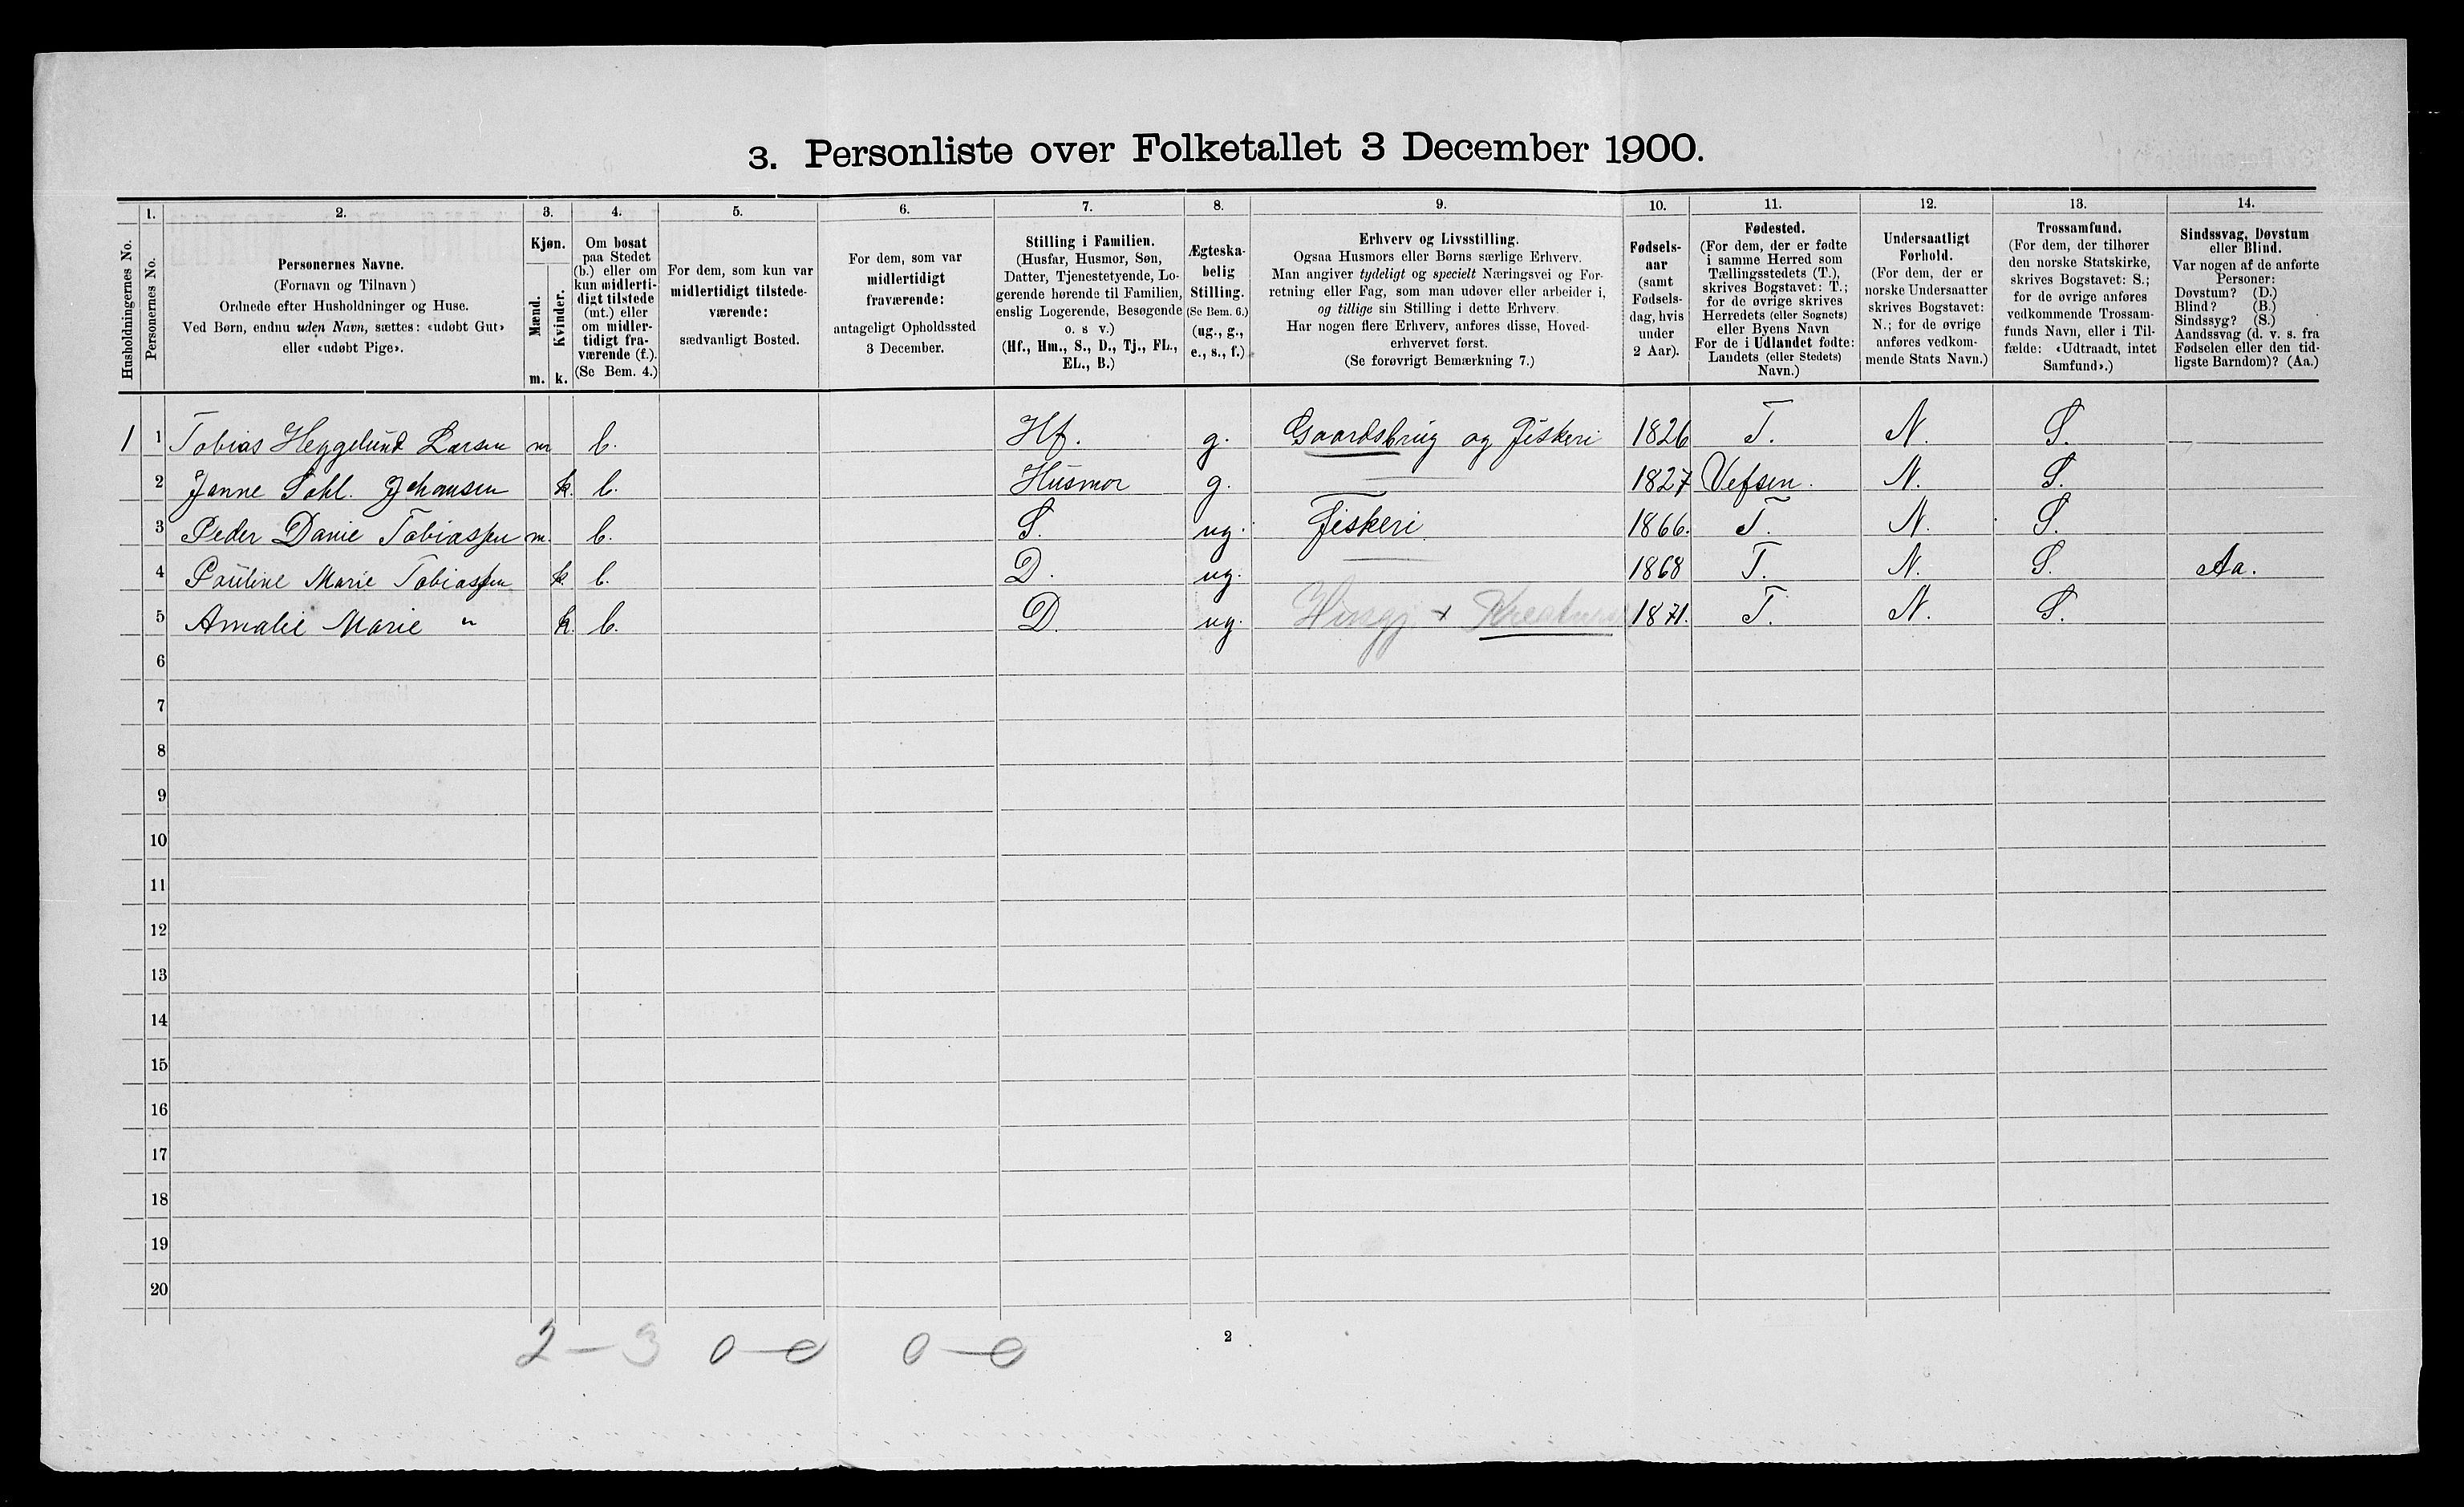 3. Personliste over Folketallet 3 December 1900.
Husholdningernes No.
1.
Personernes No.
2.
Personernes Navne.
(Fornavn og Tilnavn)
Ordnede efter Husholdninger og Huse.
Ved Børn, endnu uden Navn, sættes: «udøbt Gut»
eller «udøbt Pige».
3.
Kjøn.
Mænd.
Kvinder.
m. k.
4.
Om bosat
paa Stedet
(b.) eller om
kun midlerti-
digt tilstede
(mt.) eller
om midler-
tidigt fra-
værende (f.).
(Se Bem. 4.)
5.
For dem, som kun var
midlertidigt tilstede-
værende:
sædvanligt Bosted.
6.
For dem, som var
midlertidigt
fraværende:
antageligt Opholdssted
3 December.
7.
Stilling i Familien.
(Husfar, Husmor, Søn,
Datter, Tjenestetyende, Lo-
gerende hørende til Familien,
enslig Logerende, Besøgende
o. s v.)
(Hf., Hm., S., D., Tj., FL.,
EL., B.)
8.
Ægteska-
belig
Stilling.
(Se Bem. 6.)
(ug., g.,
e., s., f.)
9.
Erhverv og Livsstilling.
Ogsaa Husmors eller Børns særlige Erhverv.
Man angiver tydeligt og specielt Næringsvei og For-
retning eller Fag, som man udøver eller arbeider i,
og tillige sin Stilling i dette Erhverv.
Har nogen flere Erhverv, anføres disse, Hoved-
erhvervet først.
(Se forøvrigt Bemærkning 7.)
10.
Fødsels-
aar
(samt
Fødsels-
dag, hvis
under
2 Aar).
11.
Fødested.
(For dem, der er fødte
i samme Herred som
Tællingsstedets (T.),
skrives Bogstavet: T.;
for de øvrige skrives
Herredets (eller Sognets)
eller Byens Navn
For de i Udlandet fødte:
Landets (eller Stedets)
Navn.)
12.
Undersaatligt
Forhold.
(For dem, der er
norske Undersaatter
skrives Bogstavet:
N.; for de øvrige
anføres vedkom-
mende Stats Navn.)
13.
Trossamfund.
(For dem, der tilhører
den norske Statskirke,
skrives Bogstavet: S.;
for de øvrige anføres
vedkommende Trossam-
funds Navn, eller i Til-
fælde: «Udtraadt, intet
Samfund».)
14.
Sindssvag, Døvstum
eller Blind.
Var nogen af de anførte
Personer:
Døvstum? (D.)
Blind? (B.)
Sindssyg? (S.)
Aandssvag (d. v. s. fra
Fødselen eller den tid-
ligste Barndom)? (Aa.)
1 1 Tobias Heggelund Larsen m b. Hf. g. Gaardsbrug og Fiskeri 1826 T. N. S.
2 Janne Johansen k. b. Husmor g. 1827 Vefsen. N. S.
3 Peder Danie Tobiassen m. b. S. ug. Fiskeri. 1866. T. N. S.
4 Pauline Marie Tobiassen k. b. D. ug. 1868 T. N. S. Aa.
5 Amalie Marie " k. b. D. ug. + Kreature 1871. T. N. S.
6
7
8
9
10
11
12
13
14
15
16
17
18
19
20
2 – 3 0 – 0 0 – 0
2